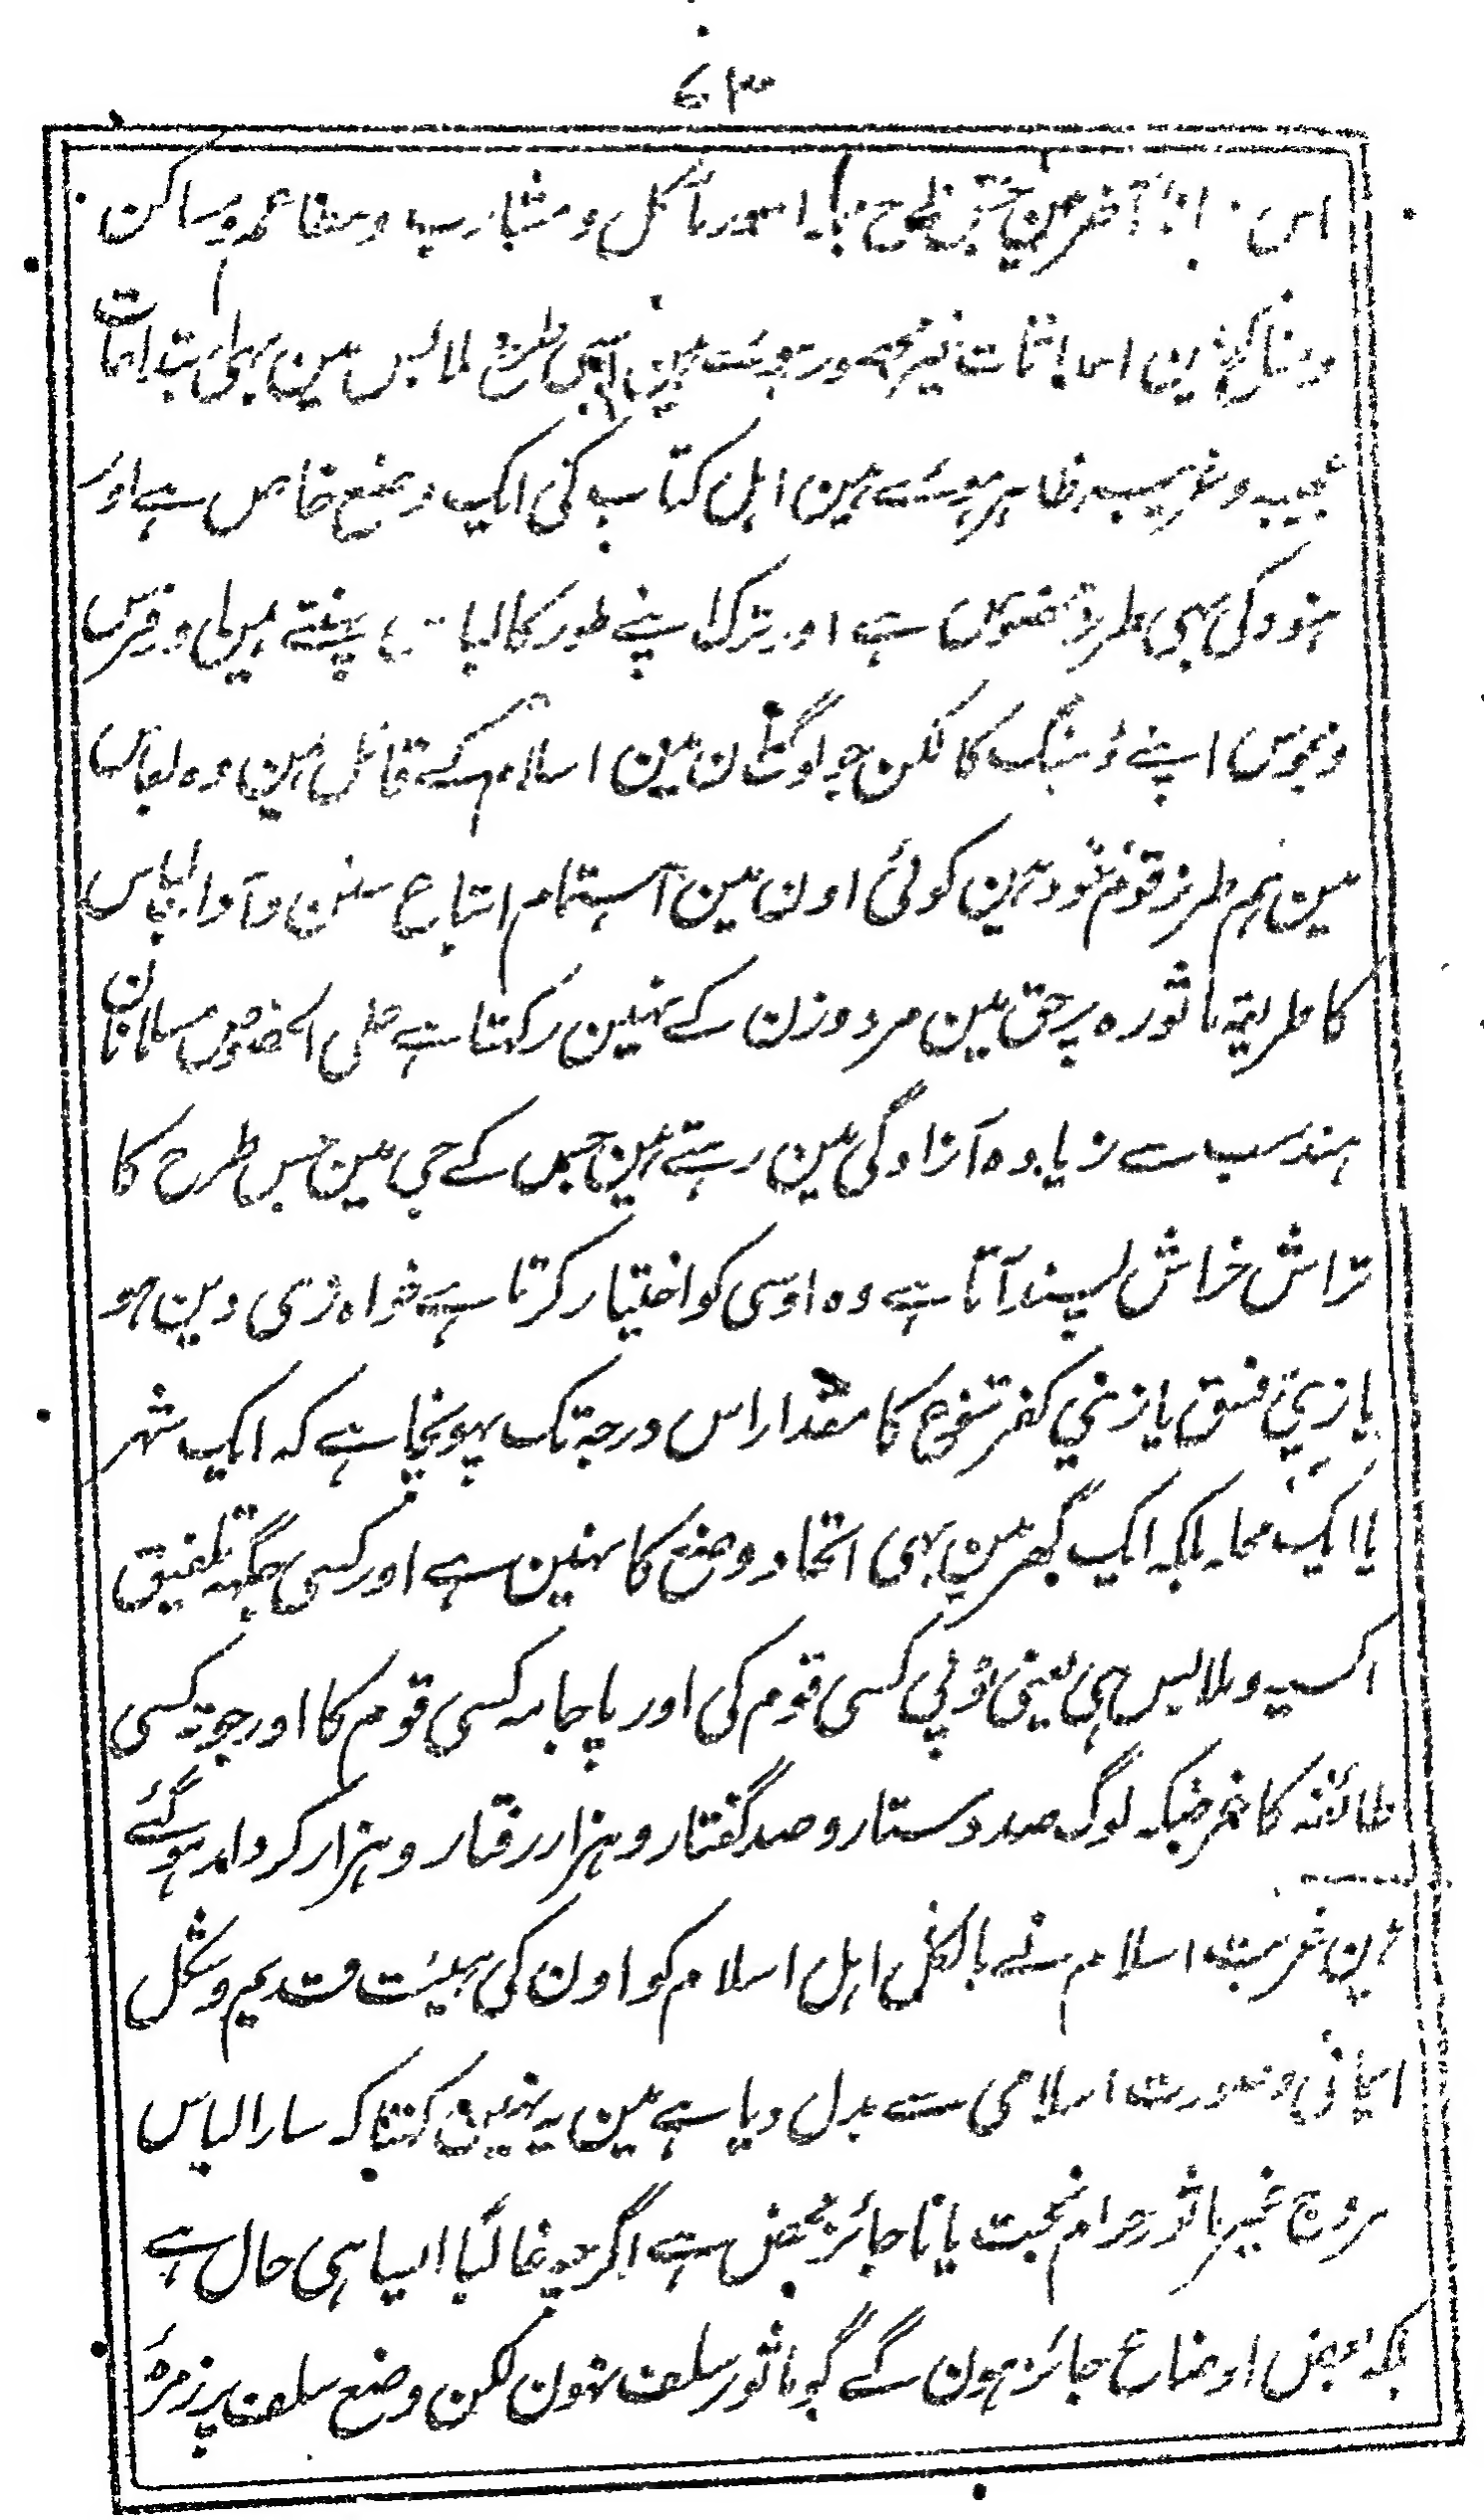 ۶۳
اس آخر مین جس طرح امور مآکل و مشارب و مطاعم و مساکن
و مناکح مین نیز محصور ہوئے ہین اسی طرح ملابس مین بہی
عجیب و غریب ظاہر ہوئے ہین اہل کتاب کی ایک وضع خاص ہے اور
ہنود کی بہی طرز مخصوص ہے اور ترک اپنے طور کا لباس پہنتے ہین و فرس
و مجوس اپنے ڈہنگ کا لکن جو لوگ ان مین اسلام کے قائل ہین وہ لباس
مین ہم طرز قوم خود ہین کوئی اون مین اہتمام اتباع سنن و آداب لباس
کا طریقہ ماثورہ پر حق مین مرد و زن کے نہین رکہتا ہے علی الخصوص مسلمانان
ہند سب سے زیادہ آزادگی مین رہتے ہین جس کے جی مین جس طرح کا
تراش خراش پسند آتا ہے وہ اوسی کو اختیار کرتا ہے خواہ زی دین ہو
یا زی فسق یا زی کفر تنوع کا مقدار اس درجہ تک پہونچا ہے کہ ایک شہر
یا ایک محلہ بلکہ ایک گہر مین بہی اتحاد وضع کا نہین ہے اور کسی جگہہ تلفیق
اکسیہ و ملابس ہی یعنی ٹوپی کسی قوم کی اور پاجامہ کسی قوم کا اور جوتہ کسی
طائفہ کا غرضکہ لوگ صد دستار و صد گفتار و ہزار رفتار و ہزار کردار ہو گئے
ہین غربت اسلام نے بالکل اہل اسلام کو اون کی ہیئت قدیم و شکل
ایمانی و صورت اسلامی سے بدل دیا ہے مین یہ نہین کہتا کہ سارا لباس
مروج غیر ماثور حرام بحت یا ناجائز محض ہے اگرچہ غالبًا ایسا ہی حال ہے
بلکہ بعض اوضاع جائز ہون گے گو ماثور سلف نہون لکن وضع سلف پر